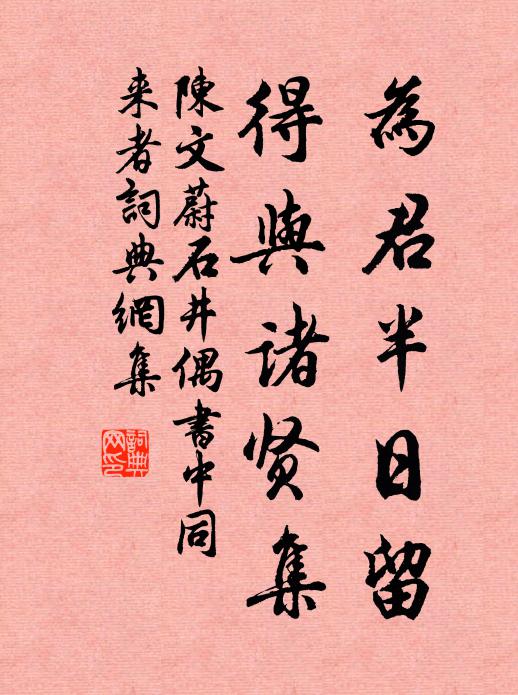 為君半日留
得與諸贤集
陳文蔚石井偶書中同
来者詞典網集
詞典網印